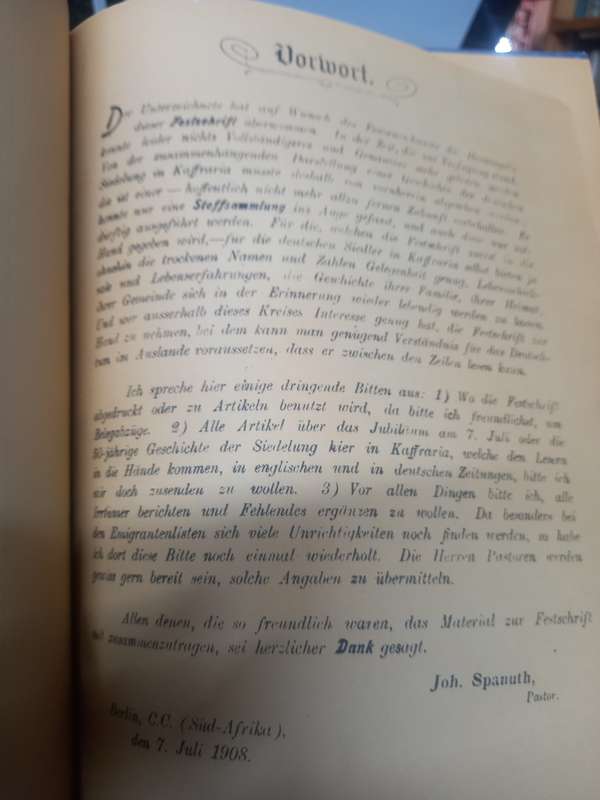 Vorwort.
Die Unterzeichnete hat auf Wunsch des
dieser Festschrift übernommen. In der Zeit, die zur Verfügung stand,
konnte leider nichts Vollständiges und Genaueres mehr geboten werden.
Von der zusammenhängenden Darstellung einer Geschichte der deutschen
Siedelung in Kaffraria musste deshalb von vornherein abgesehen werden,
die ist einer — hoffentlich nicht mehr allzu fernen Zukunft vorbehalten. Es
konnte nur eine Stoffsammlung ins Auge gefasst, und auch diese nur
dürftig ausgeführt werden. Für die, welchen die Festschrift zuerst in die
Hand gegeben wird,—für die deutschen Siedler in Kaffraria selbst bieten ja
ohnehin die trockenen Namen und Zahlen Gelegenheit genug, Lebensschick-
sale und Lebenserfahrungen, die Geschichte ihrer Familie, ihrer Heimat,
ihrer Gemeinde sich in der Erinnerung wieder lebendig werden zu lassen.
Und wer ausserhalb dieses Kreises Interesse genug hat, die Festschrift zur
Hand zu nehmen, bei dem kann man genügend Verständnis für das Deutsch-
tum im Auslande voraussetzen, dass er zwischen den Zeilen lesen kann.
Ich spreche hier einige dringende Bitten aus: 1) Wo die Festschrift
abgedruckt oder zu Artikeln benutzt wird, da bitte ich freundlichst, um
Belegabzüge. 2) Alle Artikel über das Jubiläum am 7. Juli oder die
50-jährige Geschichte der Siedelung hier in Kaffraria, welche den Lesern
in die Hände kommen, in englischen und in deutschen Zeitungen, bitte ich
mir doch zusenden zu wollen. 3) Vor allen Dingen bitte ich, alle
Irrtümer berichten und Fehlendes ergänzen zu wollen. Da besonders bei
den Emigrantenlisten sich viele Unrichtigkeiten noch finden werden, so habe
ich dort diese Bitte noch einmal wiederholt. Die Herren Pastoren werden
gewiss gern bereit sein, solche Angaben zu übermitteln.
Allen denen, die so freundlich waren, das Material zur Festschrift
mit zusammenzutragen, sei herzlicher Dank gesagt.
Joh. Spanuth,
Pastor.
Berlin, C.C. (Süd-Afrika),
den 7. Juli 1908.